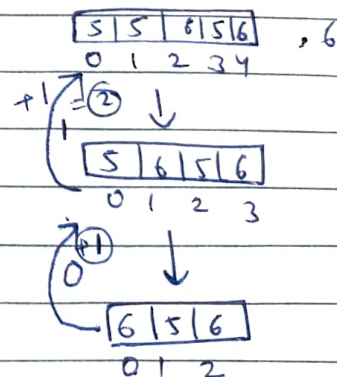 5 | 5 | 6 | 5 | 6 , 6
0 1 2 3 4
+1 = 2
1
5 | 6 | 5 | 6
0 1 2 3
+1
0
6 | 5 | 6
0 1 2